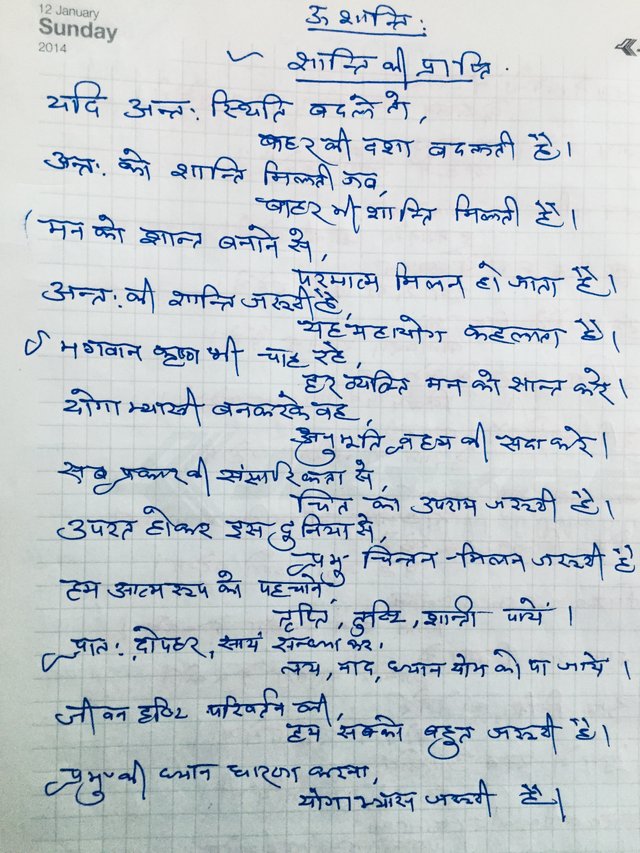 12 January
Sunday
2014
ॐ शान्ति:
शान्ति की प्राप्ति.
यदि अन्त: स्थिति बदले तो,
बाहर की दशा बदलती है।
अन्त: को शान्ति मिलती जब,
बाहर भी शान्ति मिलती है।
मन को शान्त बनाने से,
परमात्म मिलन हो जाता है।
अन्त: की शान्ति जरूरी है,
यह महायोग कहलाता है।
भगवान कृष्ण भी चाह रहे,
हर व्यक्ति मन को शान्त करे।
योगाभ्यासी बनकरके वह,
अनुभूति ब्रह्म की सदा करे।
सब प्रकार की संसारिकता से,
चित को उपराम जरूरी है।
उपरत होकर इस दुनिया से,
प्रभु चिन्तन-मिलन जरूरी है
हम आत्म रूप को पहचाने,
तृप्ति, तुष्टि, शान्ती पायें।
प्रात:, दोपहर, सायं सन्ध्या कर,
लय, नाद, ध्यान योग को पा जायें।
जीवन दृष्टि परिवर्तन की,
हम सबको बहुत जरूरी है।
प्रभु की ध्यान धारणा करना,
योगाभ्यास जरूरी है।